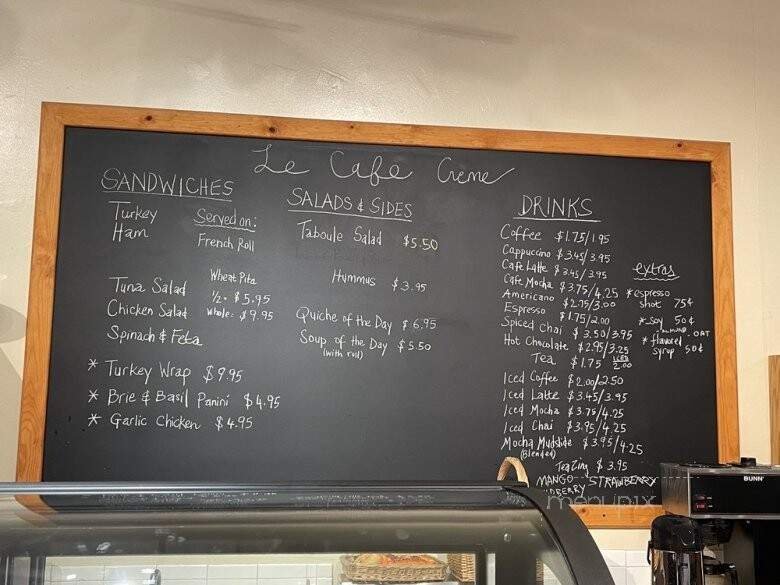 Le Cafe Creme
SANDWICHES
Turkey
Ham
Served on:
French Roll
Wheat Pita
1/2- $5.95
Whole: $9.95
Tuna Salad
Chicken Salad
Spinach & Feta
* Turkey Wrap $9.95
* Brie & Basil Panini $4.95
* Garlic Chicken $4.95
SALADS & SIDES
Taboule Salad $5.50
Hummus $3.95
Quiche of the Day $6.95
Soup of the Day $5.50
(with roll)
DRINKS
Coffee $1.75/1.95
Cappuccino $3.45/3.95
Cafe Latte $3.45/3.95
Cafe Mocha $3.75/4.25
Americano $2.75/3.00
Espresso $1.75/2.00
Spiced Chai $3.50/3.95
Hot Chocolate $2.95/3.25
Tea $1.75 2.00
Iced Coffee $2.00/2.50
Iced Latte $3.45/3.95
Iced Mocha $3.75/4.25
Iced Chai $3.95/4.25
Mocha Mudslide $3.95/4.25
(Blended)
TeaZing $3.95
MANGO STRAWBERRY
extras
*espresso
shot 75¢
*soy 50¢
ALMOND OAT
* flavored
syrup 50¢
BUNN
menupix